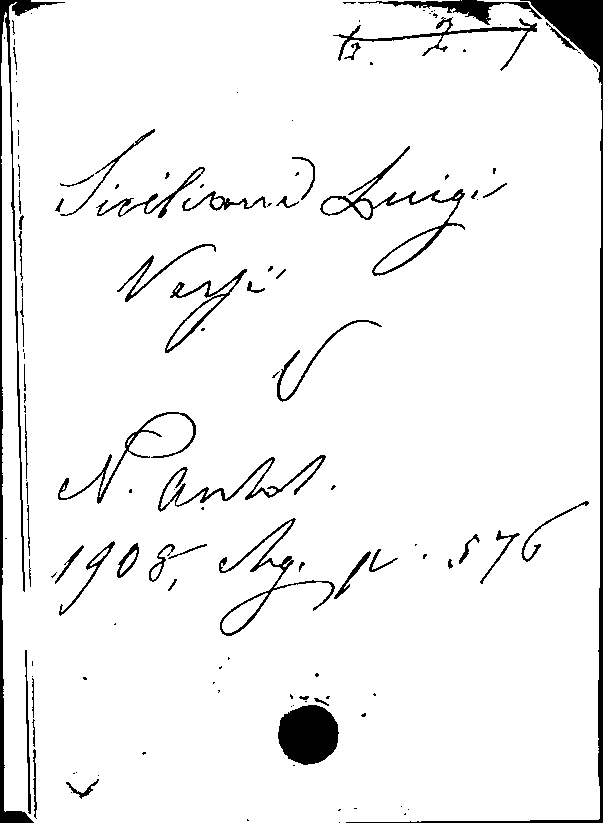 b. 2. 7
Siciliani Luigi
Versi
V
N. Antol.
1908, Ag. p. 576